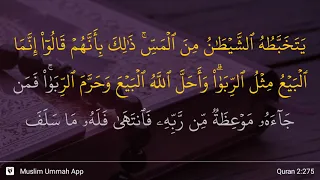 يَتَخَبَّطُهُ ٱلشَّيْطَـٰنُ مِنَ ٱلْمَسِّ ۚ ذَٰلِكَ بِأَنَّهُمْ قَالُوٓا۟ إِنَّمَا
ٱلْبَيْعُ مِثْلُ ٱلرِّبَوٰا۟ ۗ وَأَحَلَّ ٱللَّهُ ٱلْبَيْعَ وَحَرَّمَ ٱلرِّبَوٰا۟ ۚ فَمَن
جَآءَهُۥ مَوْعِظَةٌ مِّن رَّبِّهِۦ فَٱنتَهَىٰ فَلَهُۥ مَا سَلَفَ
Muslim Ummah App
Quran 2:275